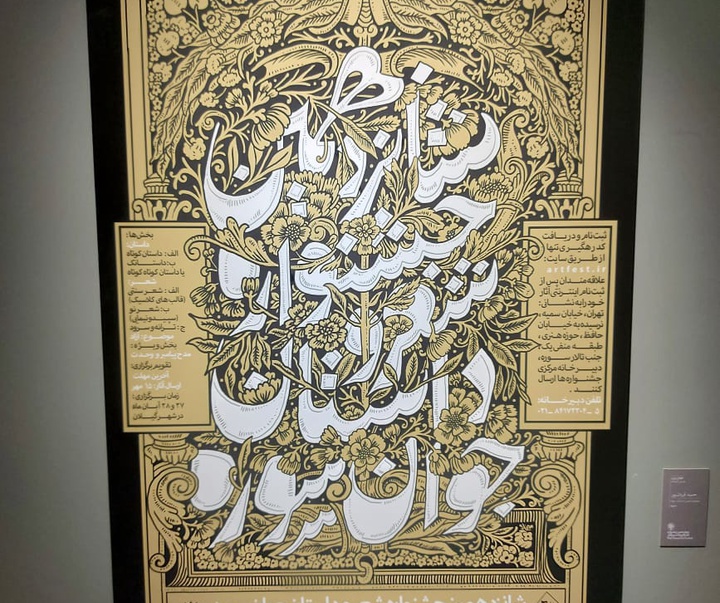 شانزدهمین
جشنواره
شعر و
داستان
جوان سوره
ثبت‌نام و دریافت
کد رهگیری تنها
از طریق سایت:
artfest.ir
علاقه‌مندان پس از
ثبت‌نام اینترنتی آثار
خود را به نشانی:
تهران، خیابان سمیه،
نرسیده به خیابان
حافظ، حوزه هنری،
طبقه منفی یک،
جنب تالار سوره،
دبیرخانه مرکزی
جشنواره‌ها ارسال
کنند.
تلفن دبیرخانه:
۰۲۱-۸۴۱۷۲۳۰۴-۵
بخش‌ها:
داستان:
الف: داستان کوتاه
ب: داستانک
یا داستان کوتاه کوتاه
شعر:
الف: شعر سنتی
(قالب‌های کلاسیک)
ب: شعر نو
(سپید و نیمایی)
ج: ترانه و سرود
موضوع: آزاد
بخش ویژه:
مدح پیامبر و وحدت
تقویم برگزاری:
آخرین مهلت
ارسال آثار: ۱۵ مهر
زمان برگزاری:
۲۷ و ۲۸ آبان ماه
در شهر گیلان
شانزدهمین جشنواره شعر و داستان جوان سوره